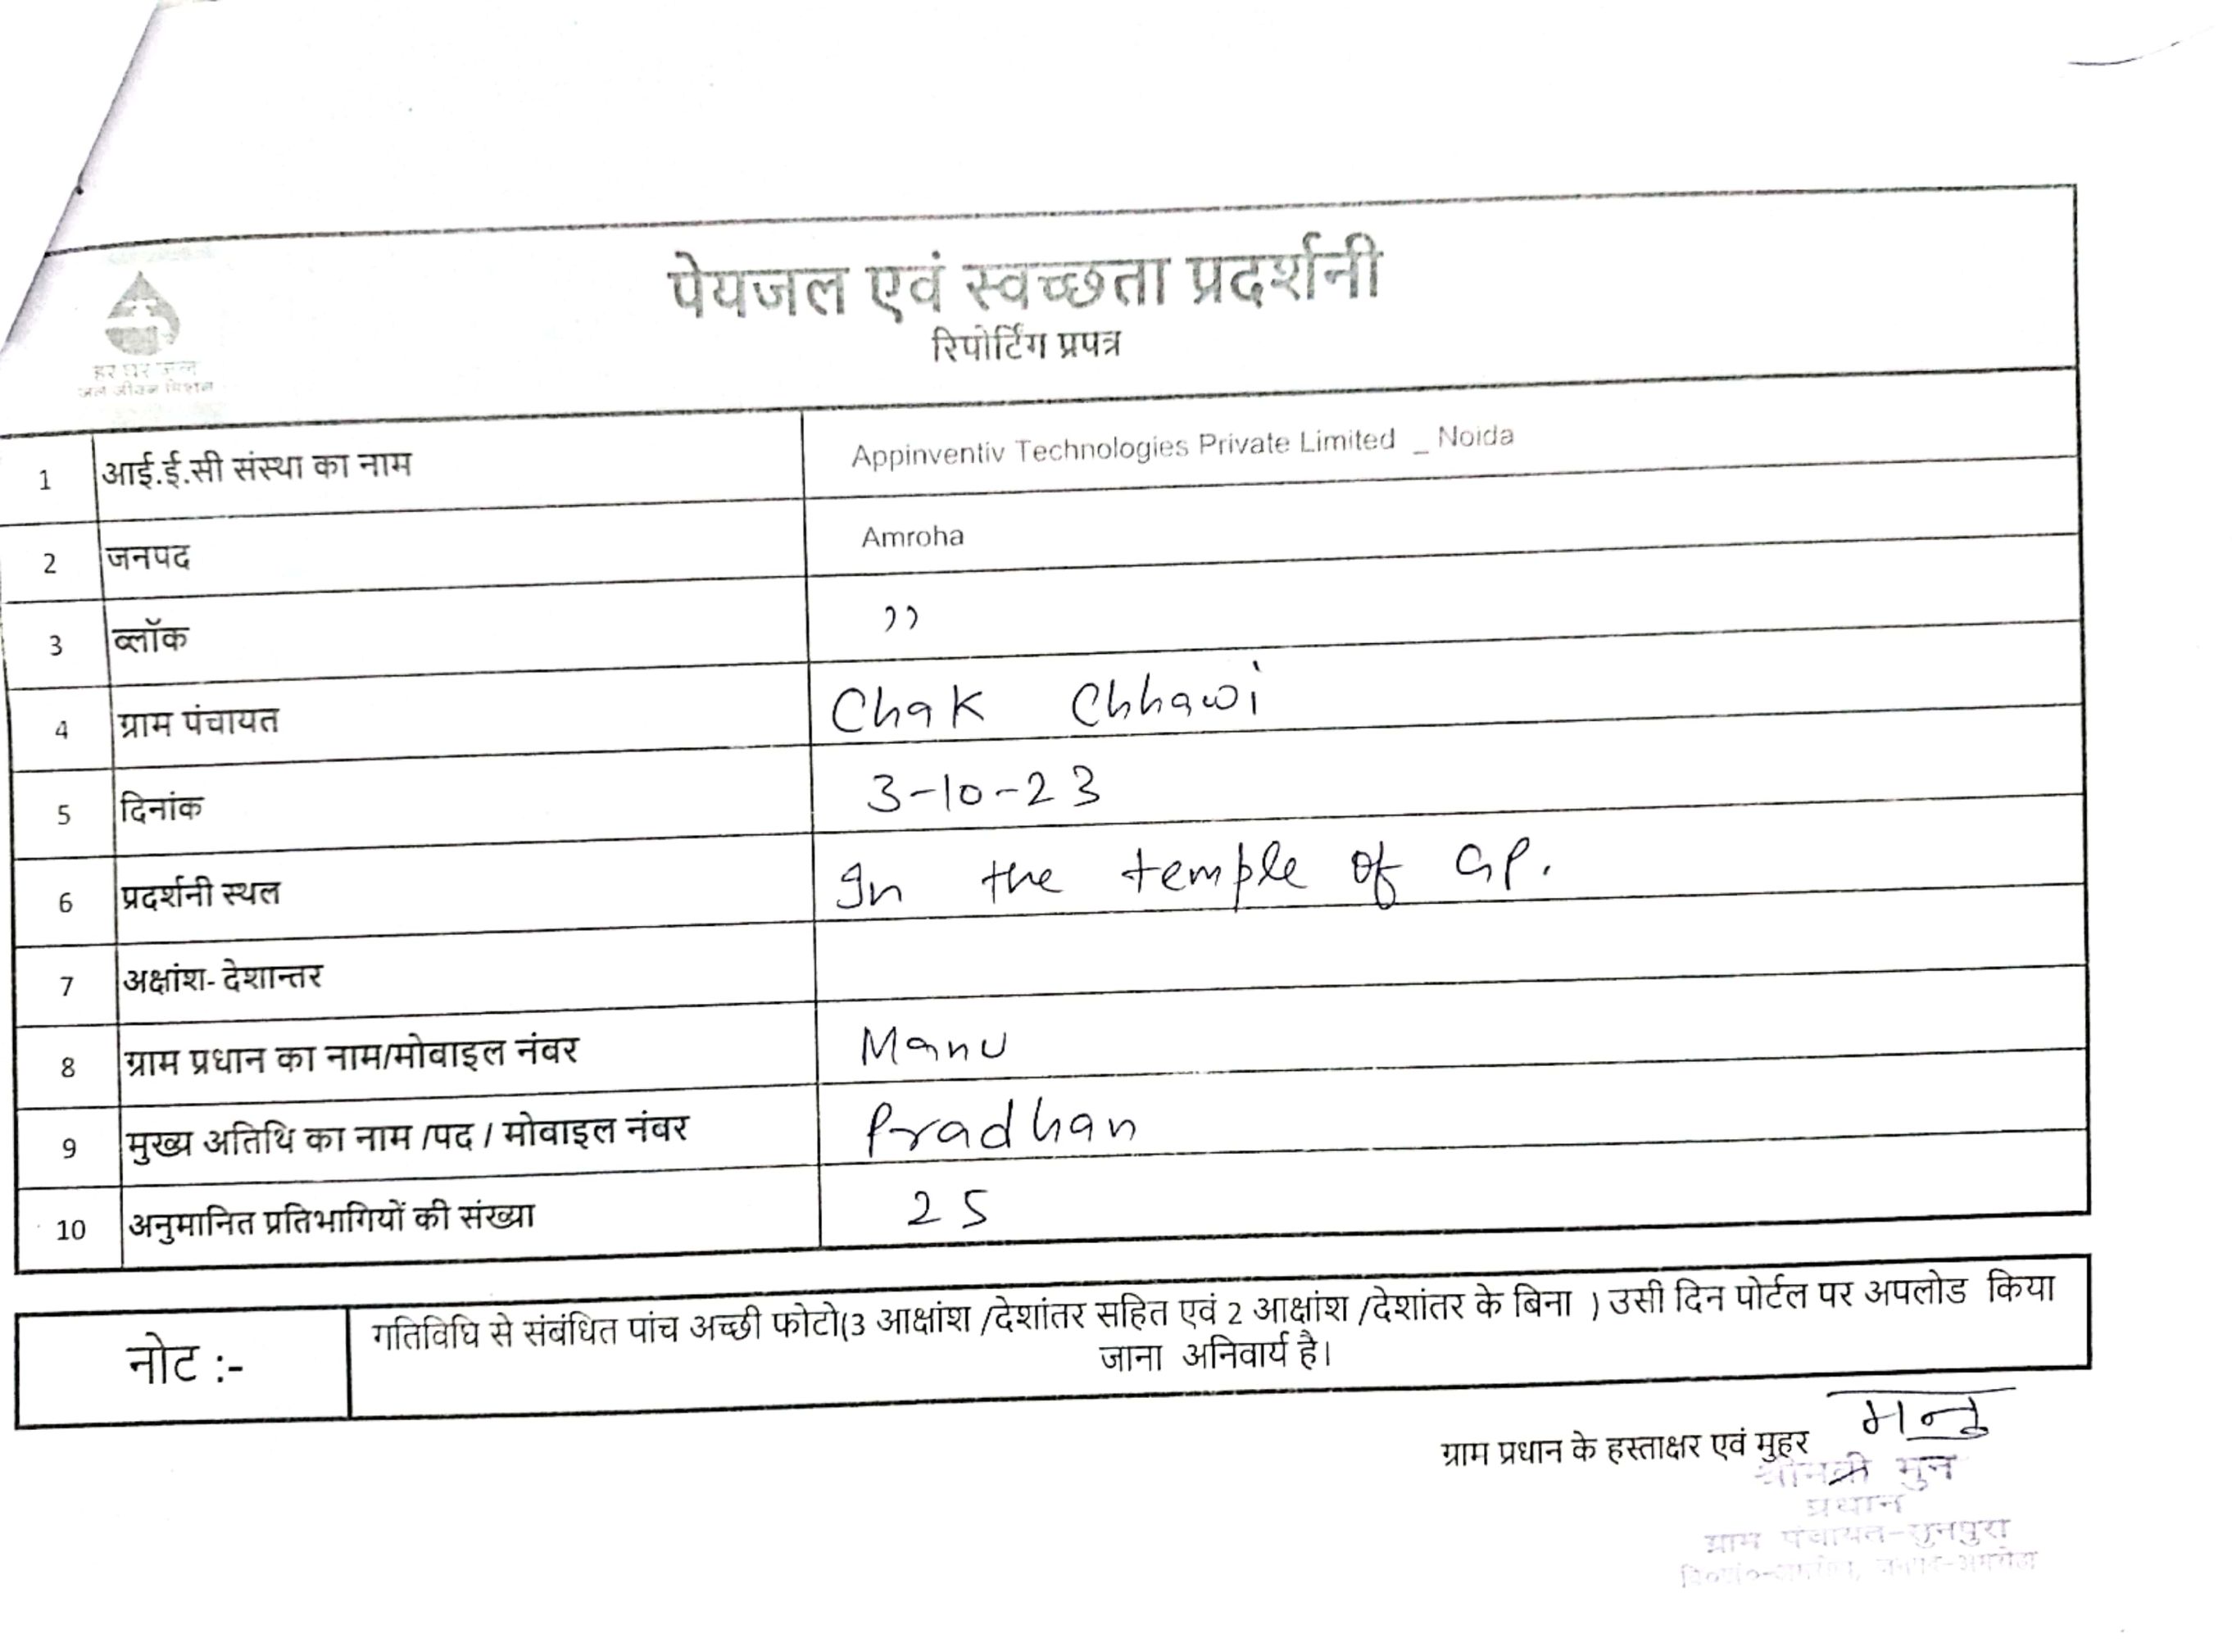 हर घर जल
जल जीवन मिशन
पेयजल एवं स्वच्छता प्रदर्शनी
रिपोर्टिंग प्रपत्र
1 आई.ई.सी संस्था का नाम Appinventiv Technologies Private Limited _ Noida
2 जनपद Amroha
3 ब्लॉक ))
4 ग्राम पंचायत Chak Chhawi
5 दिनांक 3-10-23
6 प्रदर्शनी स्थल In the temple of GP.
7 अक्षांश- देशान्तर
8 ग्राम प्रधान का नाम/मोबाइल नंबर Manu
9 मुख्य अतिथि का नाम /पद / मोबाइल नंबर Pradhan
10 अनुमानित प्रतिभागियों की संख्या 25
नोट :- गतिविधि से संबंधित पांच अच्छी फोटो(3 आक्षांश /देशांतर सहित एवं 2 आक्षांश /देशांतर के बिना ) उसी दिन पोर्टल पर अपलोड किया
जाना अनिवार्य है।
मनु
ग्राम प्रधान के हस्ताक्षर एवं मुहर
प्रधान
ग्राम पंचायत-